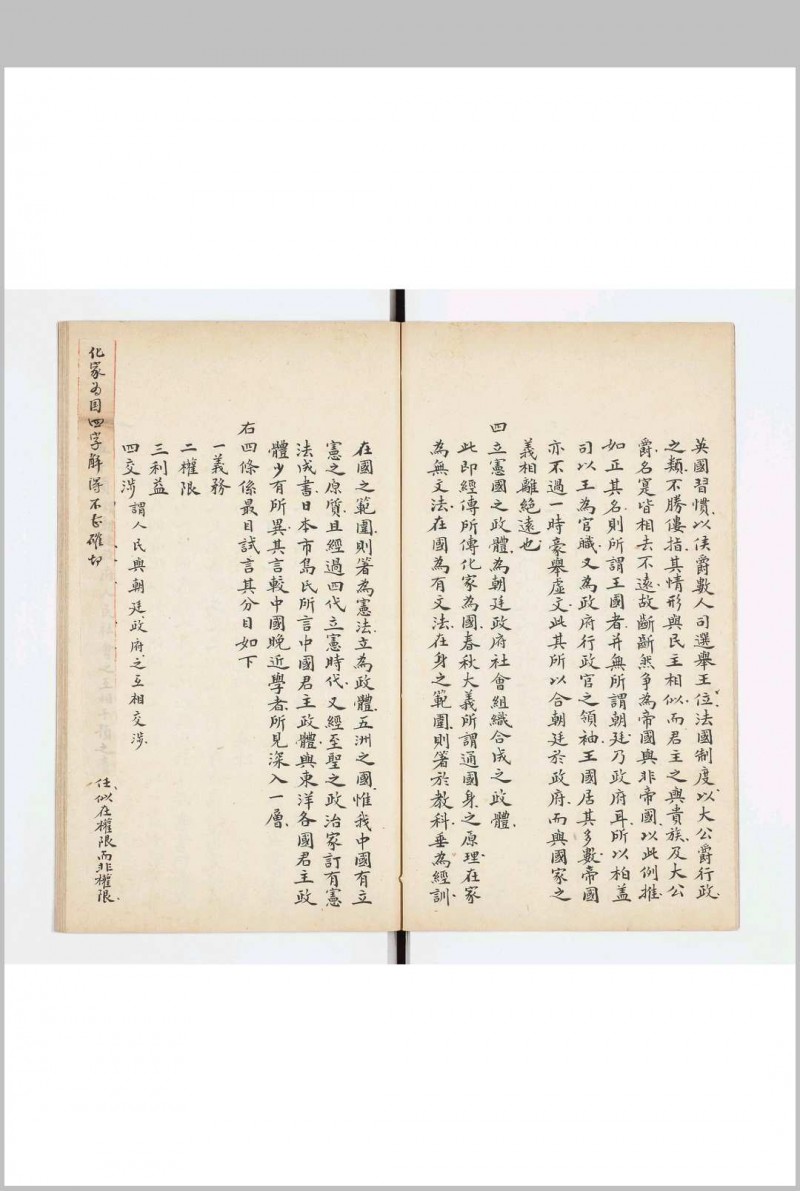 英國習慣以侯爵數人司選舉王位法國制度以大公爵行政
之類不勝僂指其情形與民主相似而君主之與貴族及大公
爵名寔皆相去不遠故斷斷然爭為帝國與非帝國以此例推
如正其名則所謂王國者并無所謂朝廷乃政府耳所以柏蓋
司以王為官職又為政府行政官之領袖王國居其多數帝國
亦不過一時豪舉虛文此其所以合朝廷於政府而與國家之
義相離絕遠也
四立憲國之政體為朝廷政府社會組織合成之政體
此即經傳所傳化家為國春秋大義所謂通國身之原理在家
為無文法在國為有文法在身之範圍則箸於教科垂為經訓
在國之範圍則箸為憲法立為政體五洲之國惟我中國有立
憲之原質且經過四代立憲時代又經至聖之政治家訂有憲
法成書日本市島氏所言中國君主政體與東洋各國君主政
體少有所異其言較中國晚近學者所見深入一層
右四條係最目試言其分目如下
一義務
二權限
三利益
四交涉 謂人民與朝廷政府之互相交涉
任似在權限而非權限
化家為國四字解得不甚確切